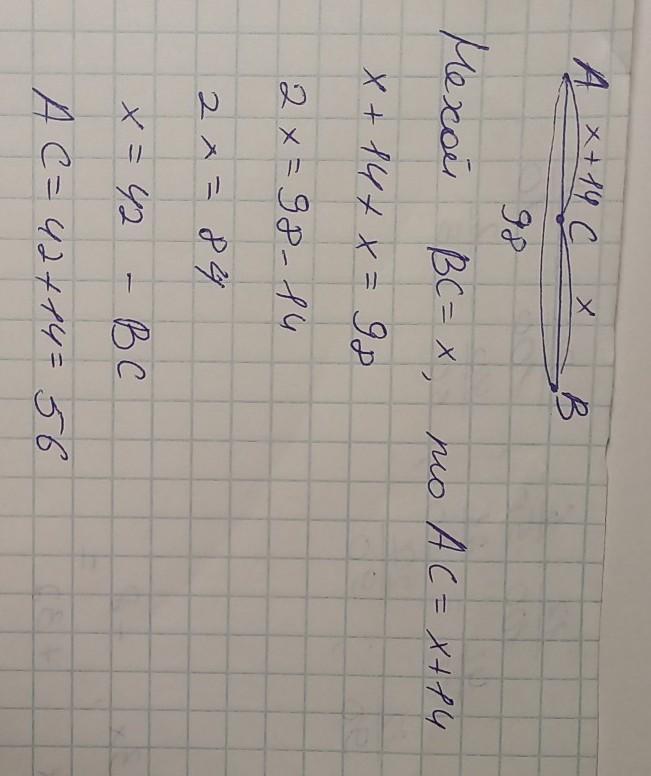 A x+14 C x B
98
Нехай BC = x, то AC = x+14
x + 14 + x = 98
2x = 98 - 14
2x = 84
x = 42 - BC
AC = 42 + 14 = 56